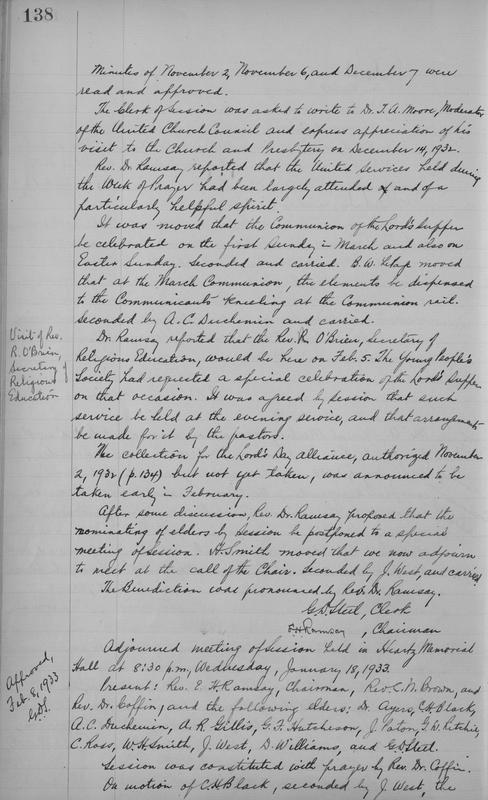 138
Minutes of November 2, November 6, and December 7 were
read and approved.
The Clerk of Session was asked to write to Dr. T. A. Moore, Moderator
of the United Church Council and express appreciation of his
visit to the Church and Presbytery on December 14, 1932.
Rev. Dr. Ramsay reported that the United Services held during
the Week of Prayer had been largely attended and of a
particularly helpful spirit.
It was moved that the Communion of the Lord's Supper
be celebrated on the first Sunday in March and also on
Easter Sunday. Seconded and carried. B. W. moved
that at the March Communion, the elements be dispensed
to the Communicants kneeling at the Communion rail.
Seconded by A. C. Duchemin and carried.
Visit of Rev.
R. O'Brien,
Secretary of
Religious
Education
Dr. Ramsay reported that the Rev. R. O'Brien, Secretary of
Religious Education, would be here on Feb. 5. The Young People's
Society had requested a special celebration of the Lord's Supper
on that occasion. It was agreed by Session that such
service be held at the evening service, and that arrangements
be made for it by the pastors.
The collection for the Lord's Day Alliance, authorized November
2, 1932 (p. 134) but not yet taken, was announced to be
taken early in February.
After some discussion, Rev. Dr. Ramsay proposed that the
nominating of elders by Session be postponed to a special
meeting of Session. H. Smith moved that we now adjourn
to meet at the call of the Chair. Seconded by J. West, and carried
The Benediction was pronounced by Rev. Dr. Ramsay.
G. D. Steel, Clerk
E H Ramsay, Chairman
Approved,
Feb. 8, 1933
G.D.S.
Adjourned meeting of Session held in Heartz Memorial
Hall at 8:30 p.m., Wednesday, January 18, 1933.
Present: Rev. E. H. Ramsay, Chairman, Rev. C. N. Brown, and
Rev. Dr. Coffin, and the following elders: Dr. Ayers, C. H. Black,
A. C. Duchemin, A. R. Gillis, G. F. Hutcheson, J. Paton, Ritchie,
C. Ross, W. H. Smith, J. West, D. Williams, and G. D. Steel.
Session was constituted with prayer by Rev. Dr. Coffin.
On motion of C. H. Black, seconded by J. West, the